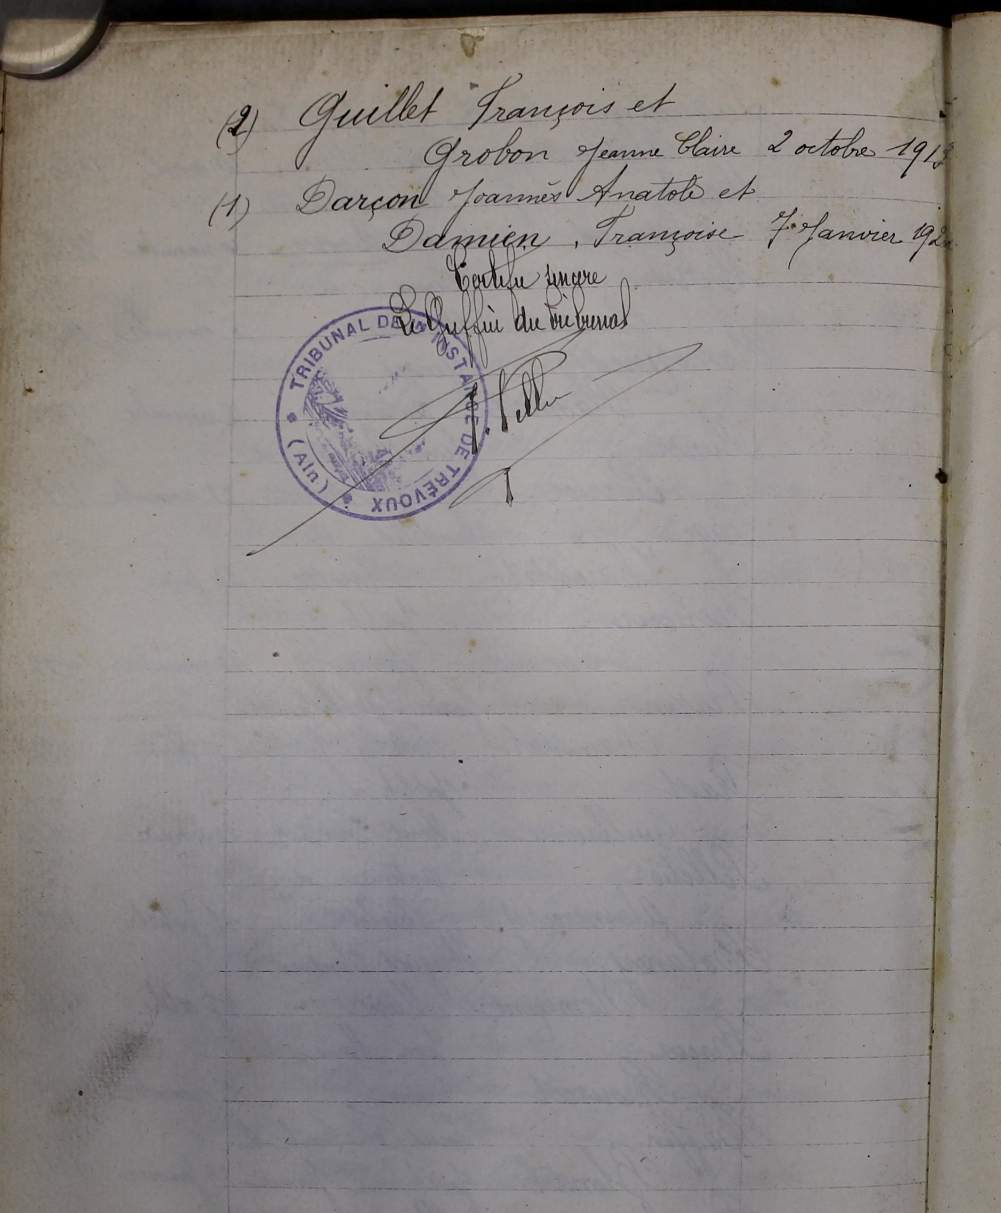 (2) Guillet François et
Grobon Jeanne Claire 2 octobre 191
(1) Darçon Joannès Anatole et
Damien, Françoise 7 Janvier 192
Certifié sincère
Le Greffier du tribunal
TRIBUNAL DE INSTANCE DE TRÉVOUX
(Ain)